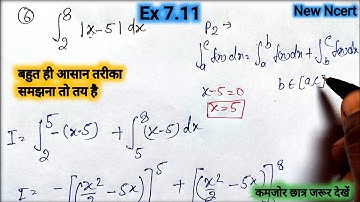 ⑥ ∫₂⁸ |x-5| dx
Ex 7.11
New Ncert
P₂ →
∫ₐᶜ f(x) dx = ∫ₐᵇ f(x) dx + ∫ᵇᶜ f(x) dx
b ∈ [a, c]
बहुत ही आसान तरीका
समझना तो तय है
x-5=0
x=5
I = ∫₂⁵ -(x-5) + ∫₅⁸ (x-5) dx
I = -[(x²/2 - 5x)]⁵ + [(x²/2 - 5x)]⁸
कमजोर छात्र जरूर देखें